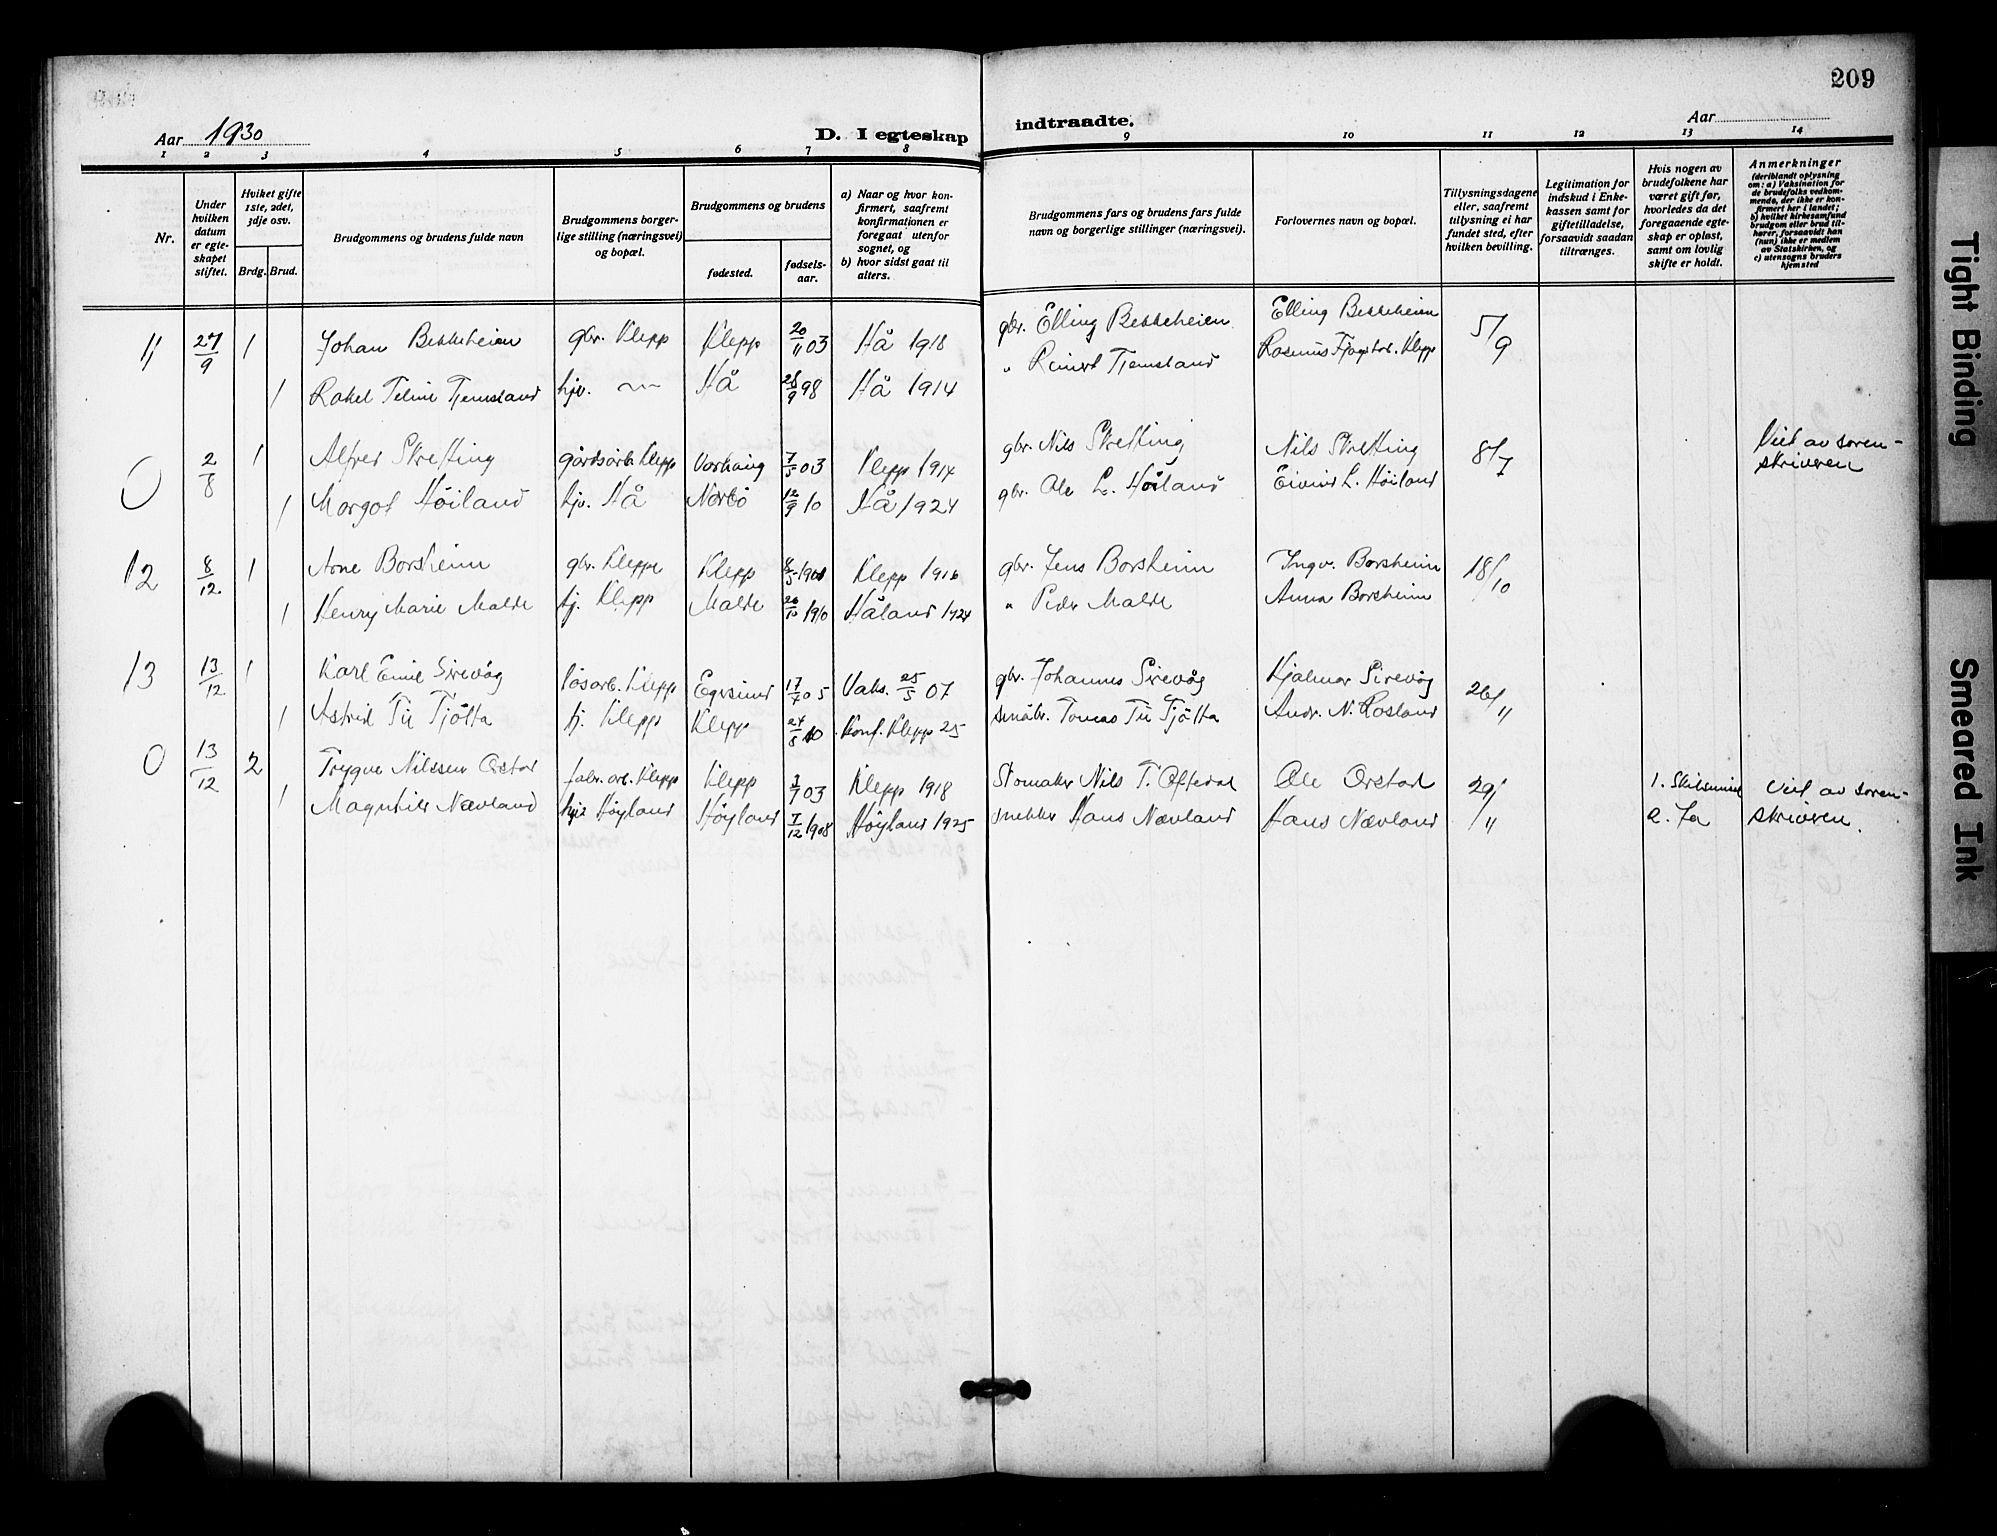 209
Aar 1930
D. I egteskap indtraadte.
Aar
1 2 3 4 5 6 7 8 9 10 11 12 13 14
Nr.
Under hvilken datum er egteskapet stiftet.
Hviket gifte 1ste, 2det, 3dje osv.
Brdg. Brud.
Brudgommens og brudens fulde navn
Brudgommens borgerlige stilling (næringsvei) og bopæl.
Brudgommens og brudens
fødested.
fødselsaar.
a) Naar og hvor konfirmert, saafremt konfirmationen er foregaat utenfor sognet, og
b) hvor sidst gaat til alters.
Brudgommens fars og brudens fars fulde navn og borgerlige stillinger (næringsvei).
Forlovernes navn og bopæl.
Tillysningsdagene eller, saafremt tillysning ei har fundet sted, efter hvilken bevilling.
Legitimation for indskud i Enkekassen samt for giftetilladelse, forsaavidt saadan tiltrænges.
Hvis nogen av brudefolkene har været gift før, hvorledes da det foregaaende egteskap er opløst, samt om lovlig skifte er holdt.
Anmerkninger (deriblandt oplysning om: a) Vaksination for de brudefolks vedkommende, der ikke er konfirmert her i landet; b) hvilket kirkesamfund brudgom eller brud tilhører, forsaavidt han (hun) ikke er medlem av Statskirken, og c) utensogns bruders hjemsted
11 27/9 1 Johan Bekkeheien gbr. Klepp Klepp 20/11 03 Hå 1918 gbr. Elling Bekkeheien Elling Bekkeheien 5/9
1 Rakel Teline Tjemsland hjv. Hå 28/9 98 Hå 1914 " Reinert Tjemsland Rasmus Klepp
0 2/8 1 Alfred Skretting gårdsarb. Klepp Varhaug 7/5 03 Klepp 1917 gbr. Nils Skretting Nils Skretting 8/7 Viet av soren-
skriveren
1 Margot Høiland hjv. Hå Nærbø 12/9 10 Hå 1924 gbr. Ole L. Høiland Eivind L. Høiland
12 8/12 1 Arne Borsheim gbr. Kleppe Klepp 8/5 1901 Klepp 1916 gbr. Jens Borsheim Ingv. Borsheim 18/10
1 Henry Marie Malde hj. Klepp Malde 26/10 1910 Håland 1924 " Peder Malde Anna Borsheim
13 13/12 1 Karl Emil Sirevåg løsarb. Klepp Egersund 17/7 05 Vaks. 25/5 07 gbr. Johannes Sirevåg Hjalmar Sirevåg 26/11
1 Astrid Tu Tjåtta hj. Klepp Klepp 24/8 10 Konf. Klepp 25 småbr. Tomas Tu Tjåtta Andr. N. Rosland
0 13/12 2 Trygve Nilssen Orstad fabr. arb. Klepp Klepp 3/7 03 Klepp 1918 Skomaker Nils T. Oftedal Ole Orstad 29/11 1. Skilsmisse Viet av soren-
1 Magnhild Nævland hjv Høyland Høyland 7/12 1908 Høyland 1925 snekker Hans Nævland Hans Nævland 2. Ja skriveren.
Tight Binding
Smeared Ink